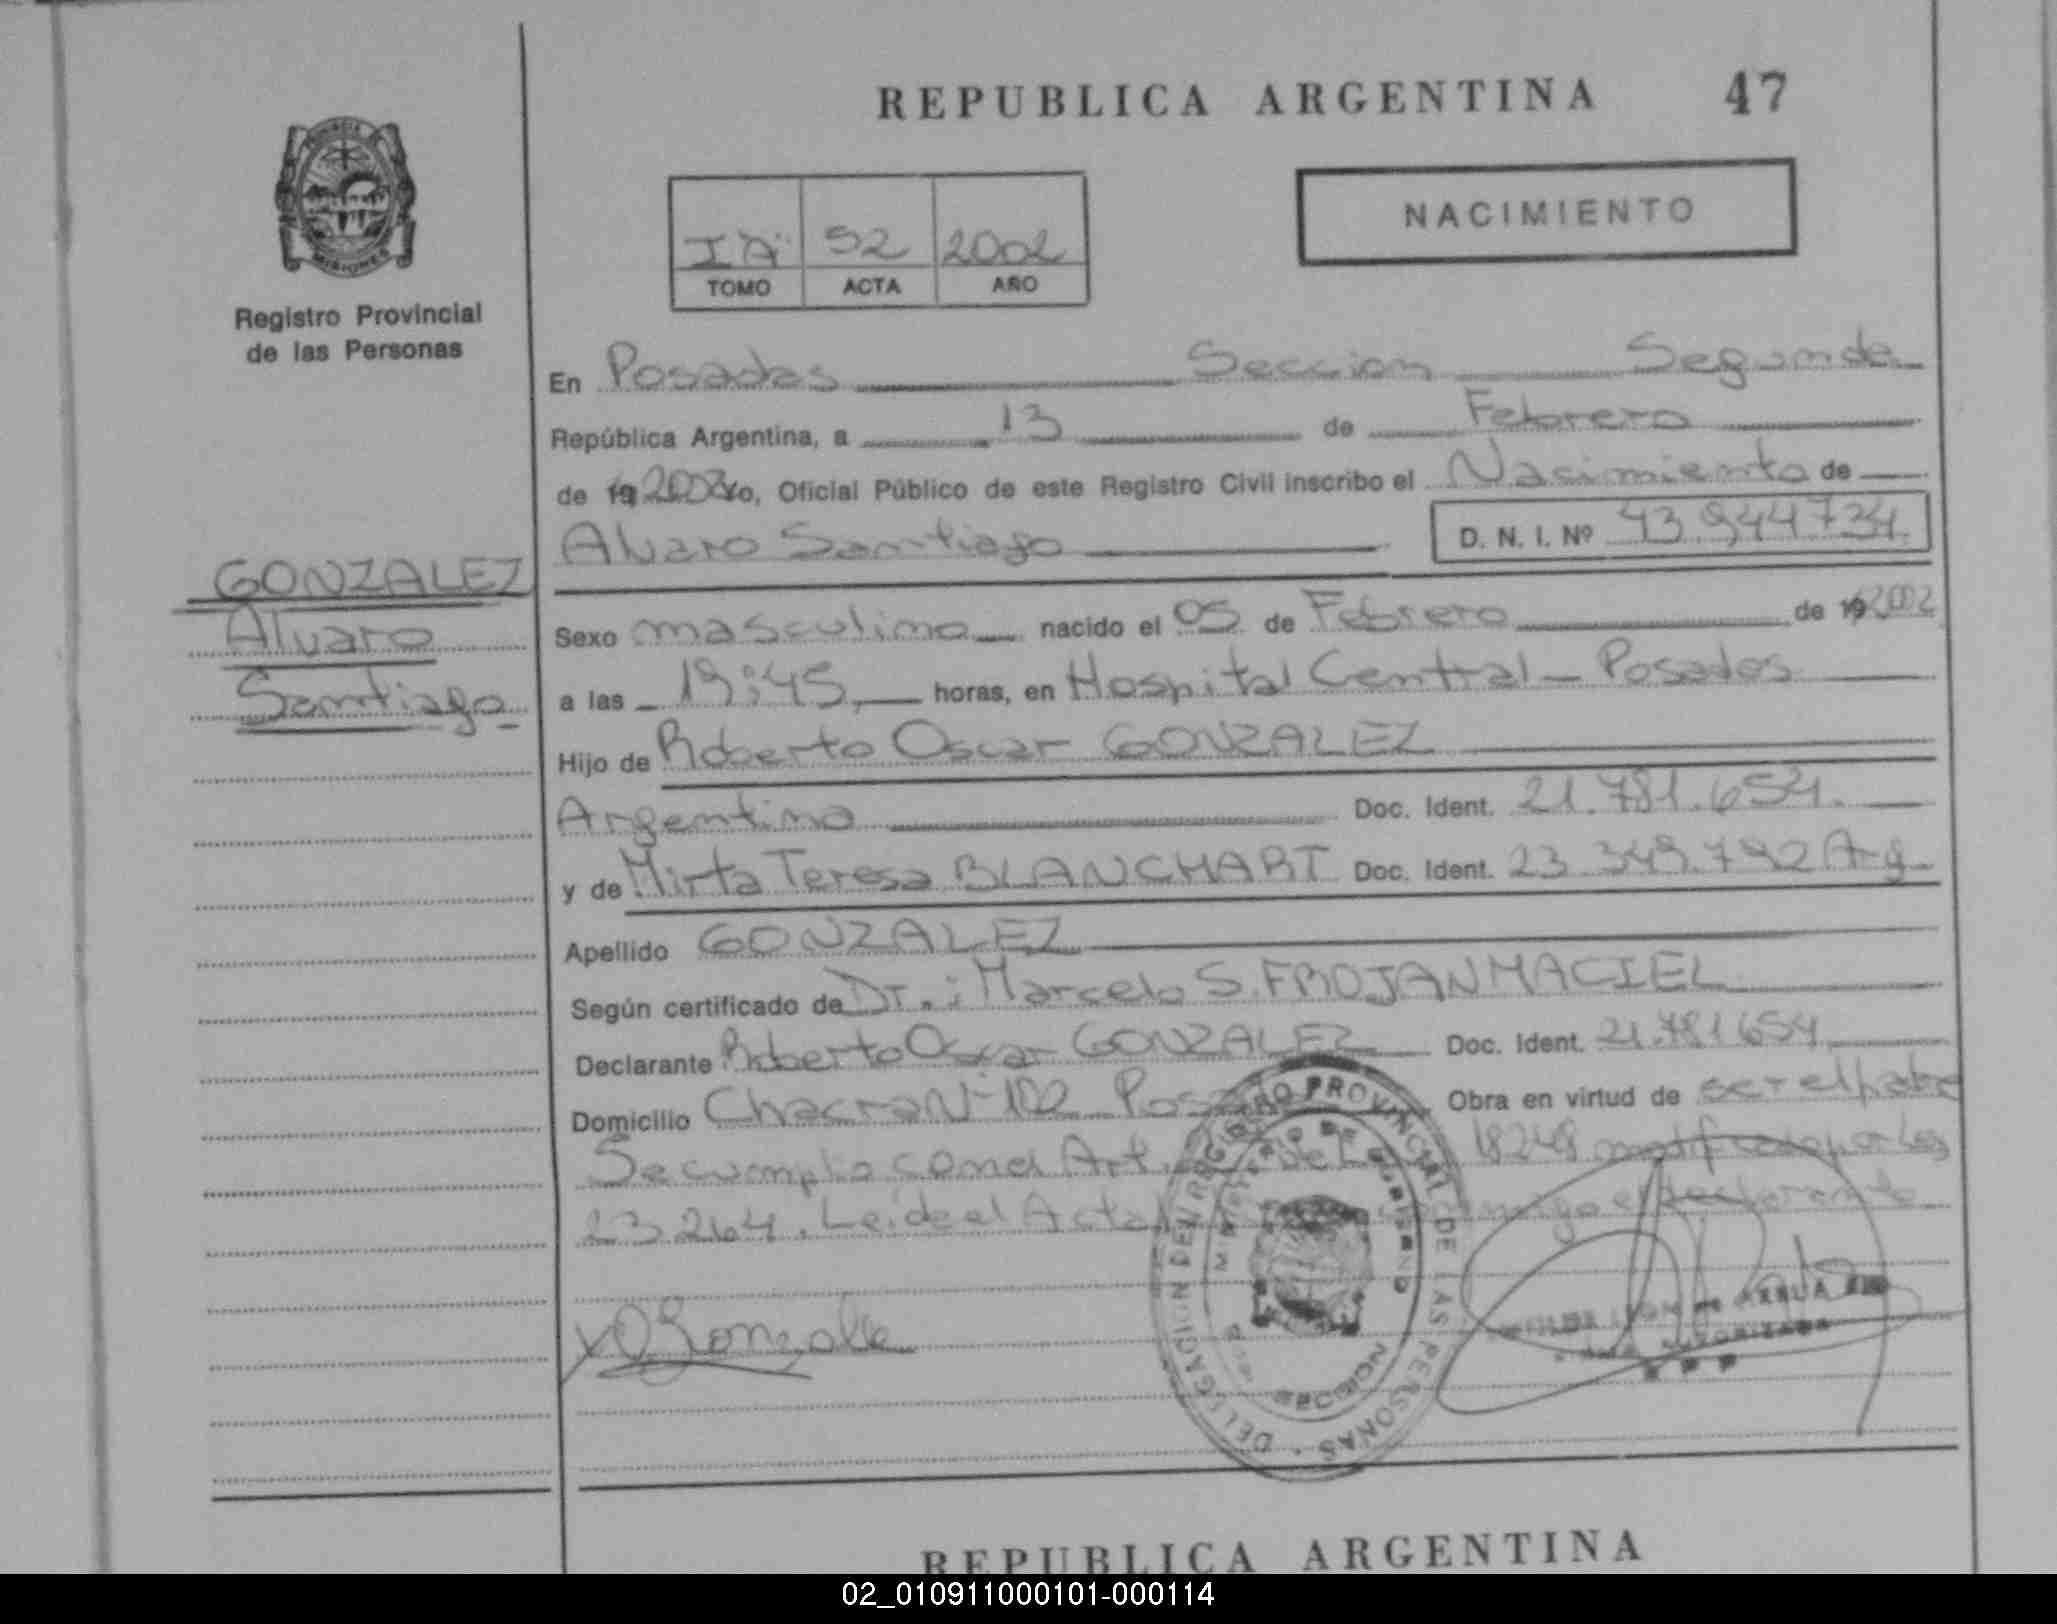 REPUBLICA ARGENTINA 47
NACIMIENTO
IAº 92 2002
TOMO ACTA AÑO
MISIONES
Registro Provincial
de las Personas
En Posadas Seccion Segunda
República Argentina, a 13 de Febrero
de 19 2002 Yo, Oficial Público de este Registro Civil inscribo el Nasimiento de
Alvaro Santiago D. N. I. Nº 43.944734
GONZALEZ
Alvaro
Santiago
Sexo masculino nacido el 05 de Febrero de 19 2002
a las 19:45 horas, en Hospital Central - Posadas
Hijo de Roberto Oscar GONZALEZ
Argentino Doc. Ident. 21.781.654.
y de Mirta Teresa BLANCHART Doc. Ident. 23.349.792 Arg
Apellido GONZALEZ
Según certificado de Dr.: Marcelo S. FROJAN MACIEL
Declarante Roberto Oscar GONZALEZ Doc. Ident. 21.781654
Domicilio Chacra Nº 102 Obra en virtud de ser el padre
Se cumple con el Art. de 18248 modificado por Ley
23.264. Leide el Acta conmigo el declarante
REGISTRO PROVINCIAL DE LAS PERSONAS
DELEGACION
MINISTERIO DE GOBIERNO
SECCION
ARRUA
AUTORIZADA
REPUBLICA ARGENTINA
02_010911000101-000114